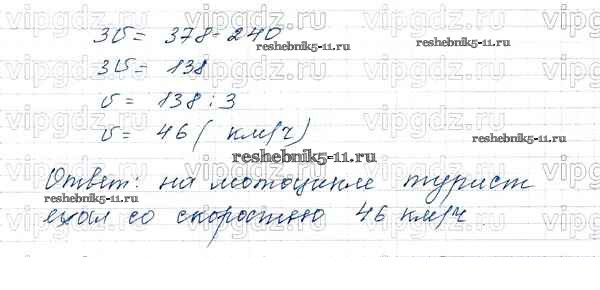 3v = 378-240
reshebnik5-11.ru
reshebnik5-11.ru
3v = 138
v = 138 : 3
v = 46 ( км/ч )
reshebnik5-11.ru
reshebnik5-11.ru
Ответ: на мотоцикле турист
reshebnik5-11.ru
ехал со скоростью 46 км/ч.
vipgdz.ru vipgdz.ru vipgdz.ru vipgdz.ru